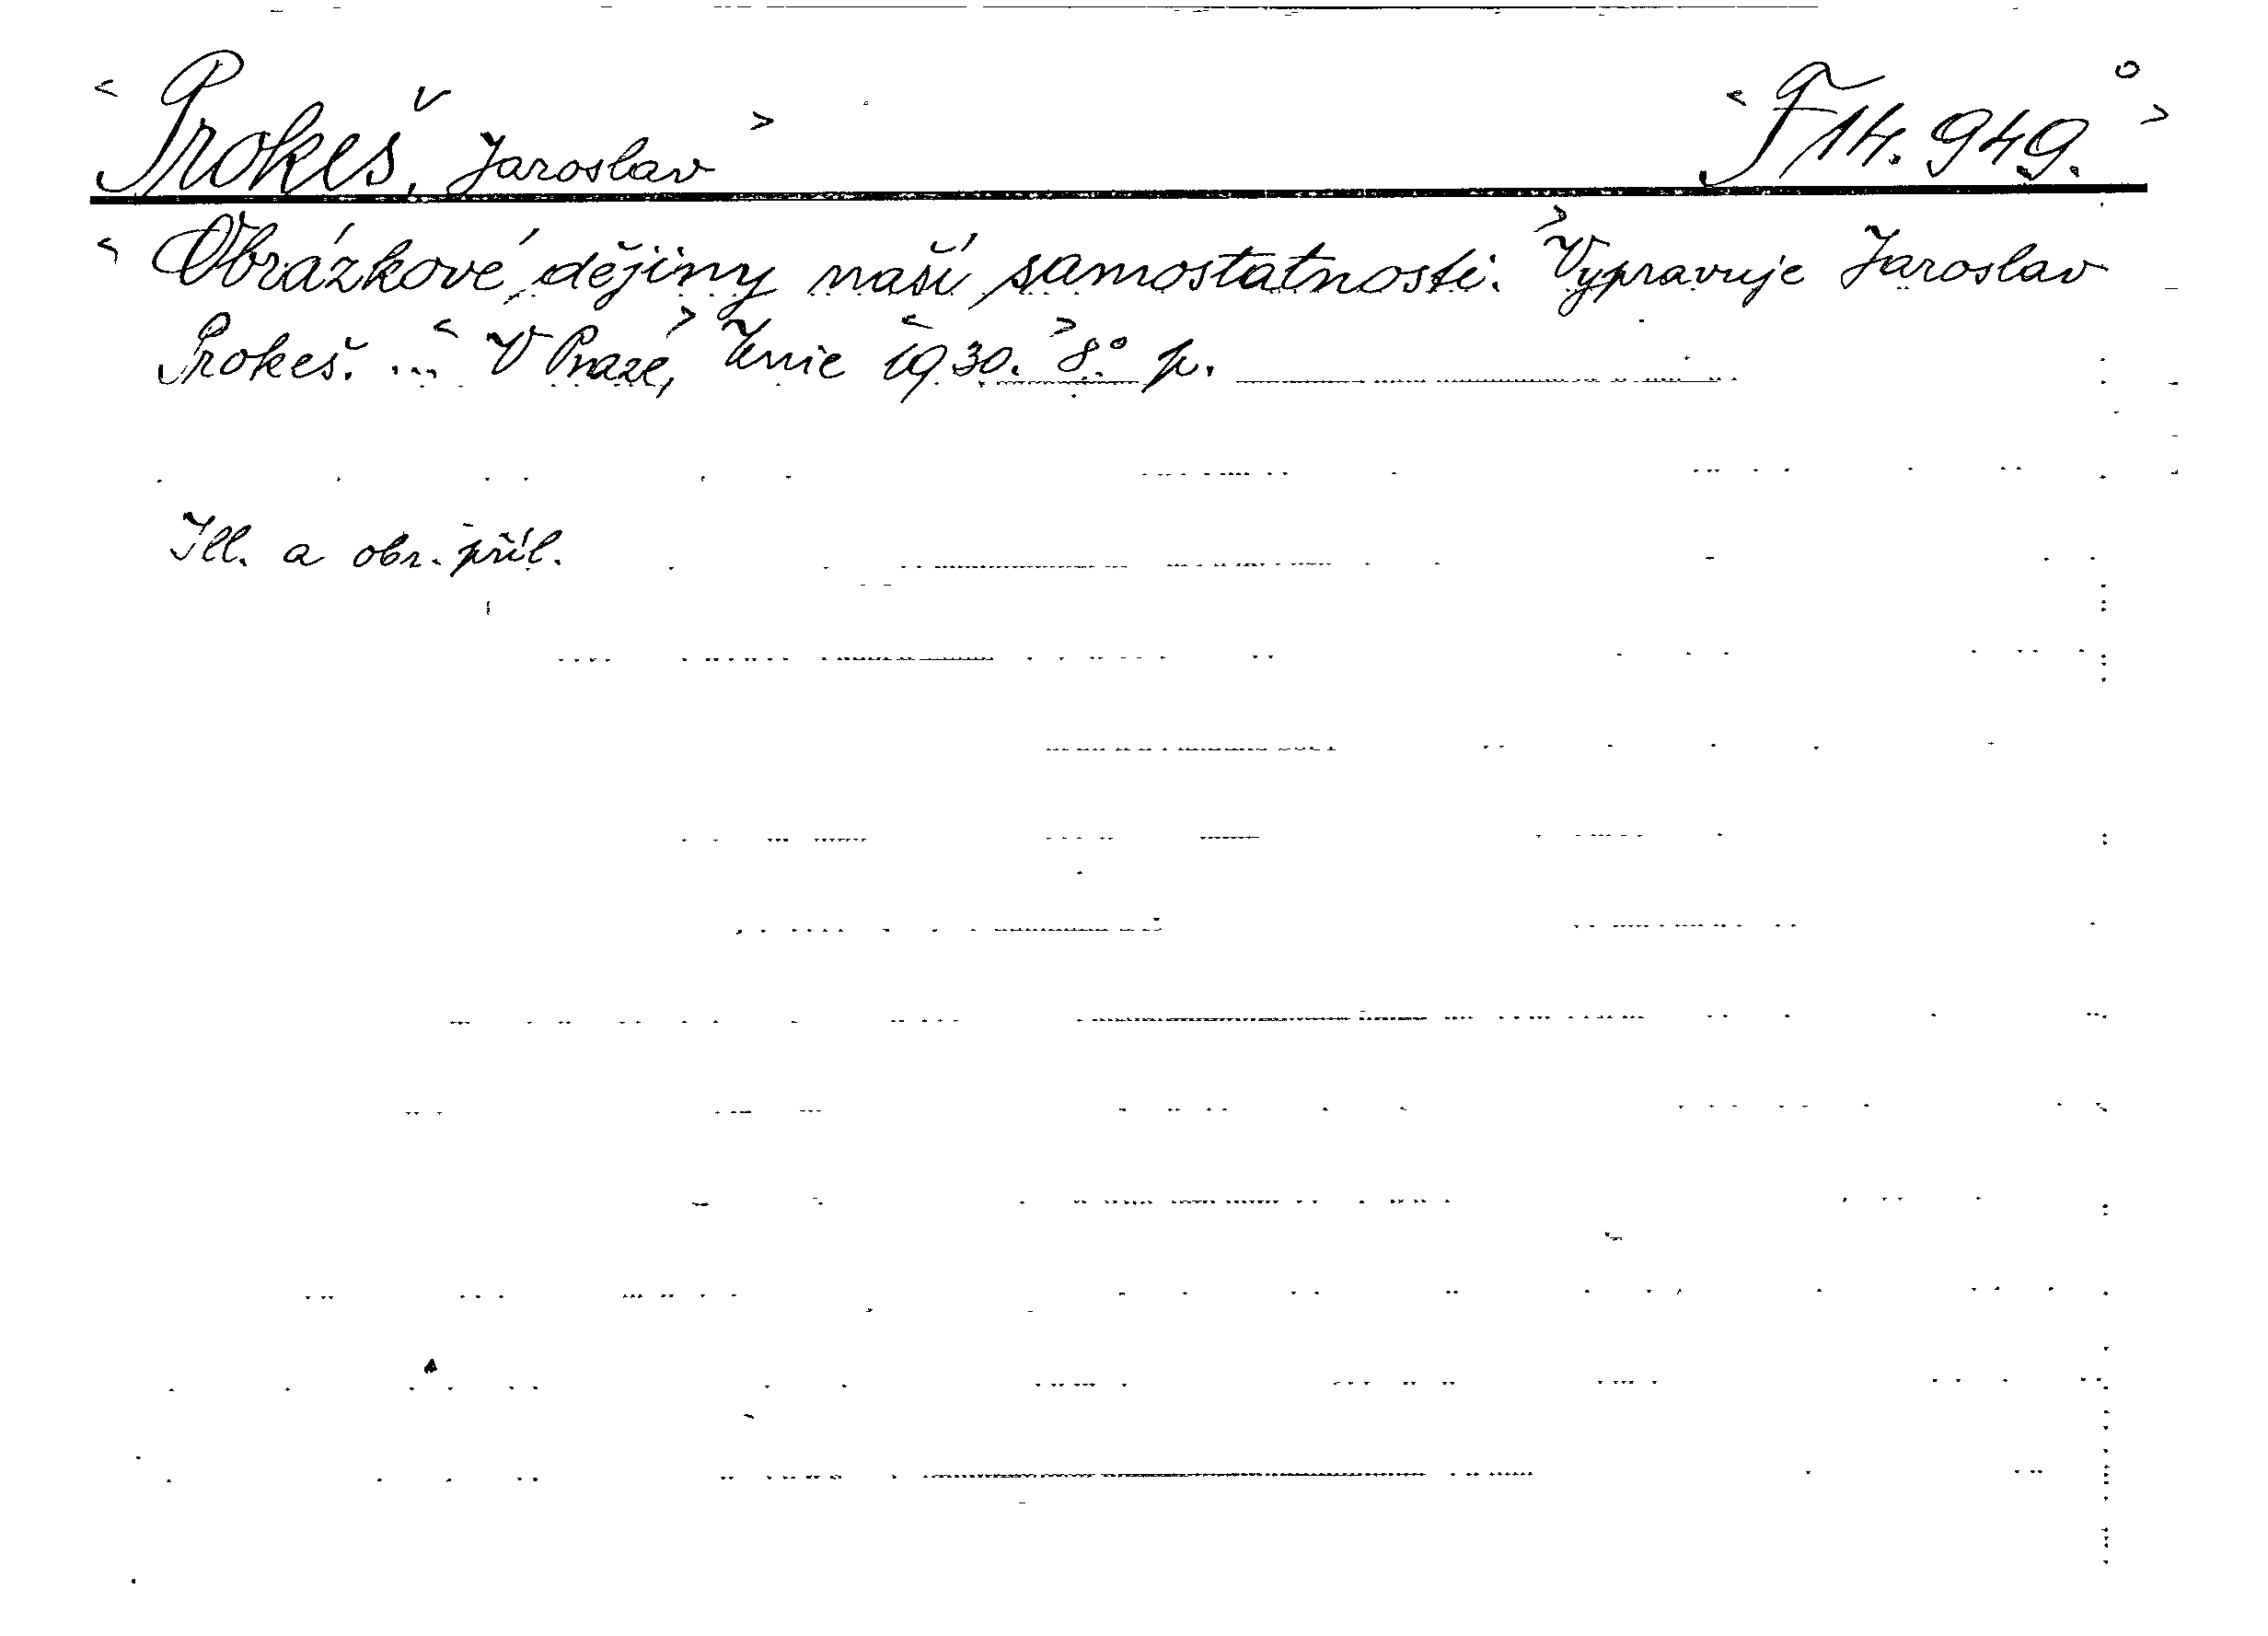 < Prokeš, Jaroslav > < F 14.949. >
< Obrázkové dějiny naší samostatnosti. > Vypravuje Jaroslav
Prokeš. ... < V Praze, > Unie < 1930. > 8° p.
Ill. a obr. příl.